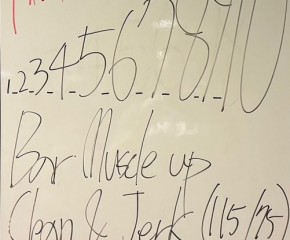 1-2-3-4-5-6-7-8-9-10
Bar Muscle up
Clean & Jerk (115/75)